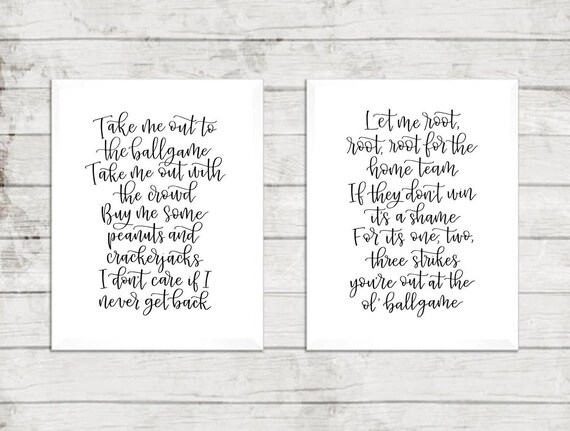 Take me out to
the ballgame
Take me out with
the crowd
Buy me some
peanuts and
crackerjacks
I dont care if I
never get back
Let me root,
root, root for the
home team
If they dont win
its a shame
For its one, two,
three strikes
you're out at the
ol' ballgame